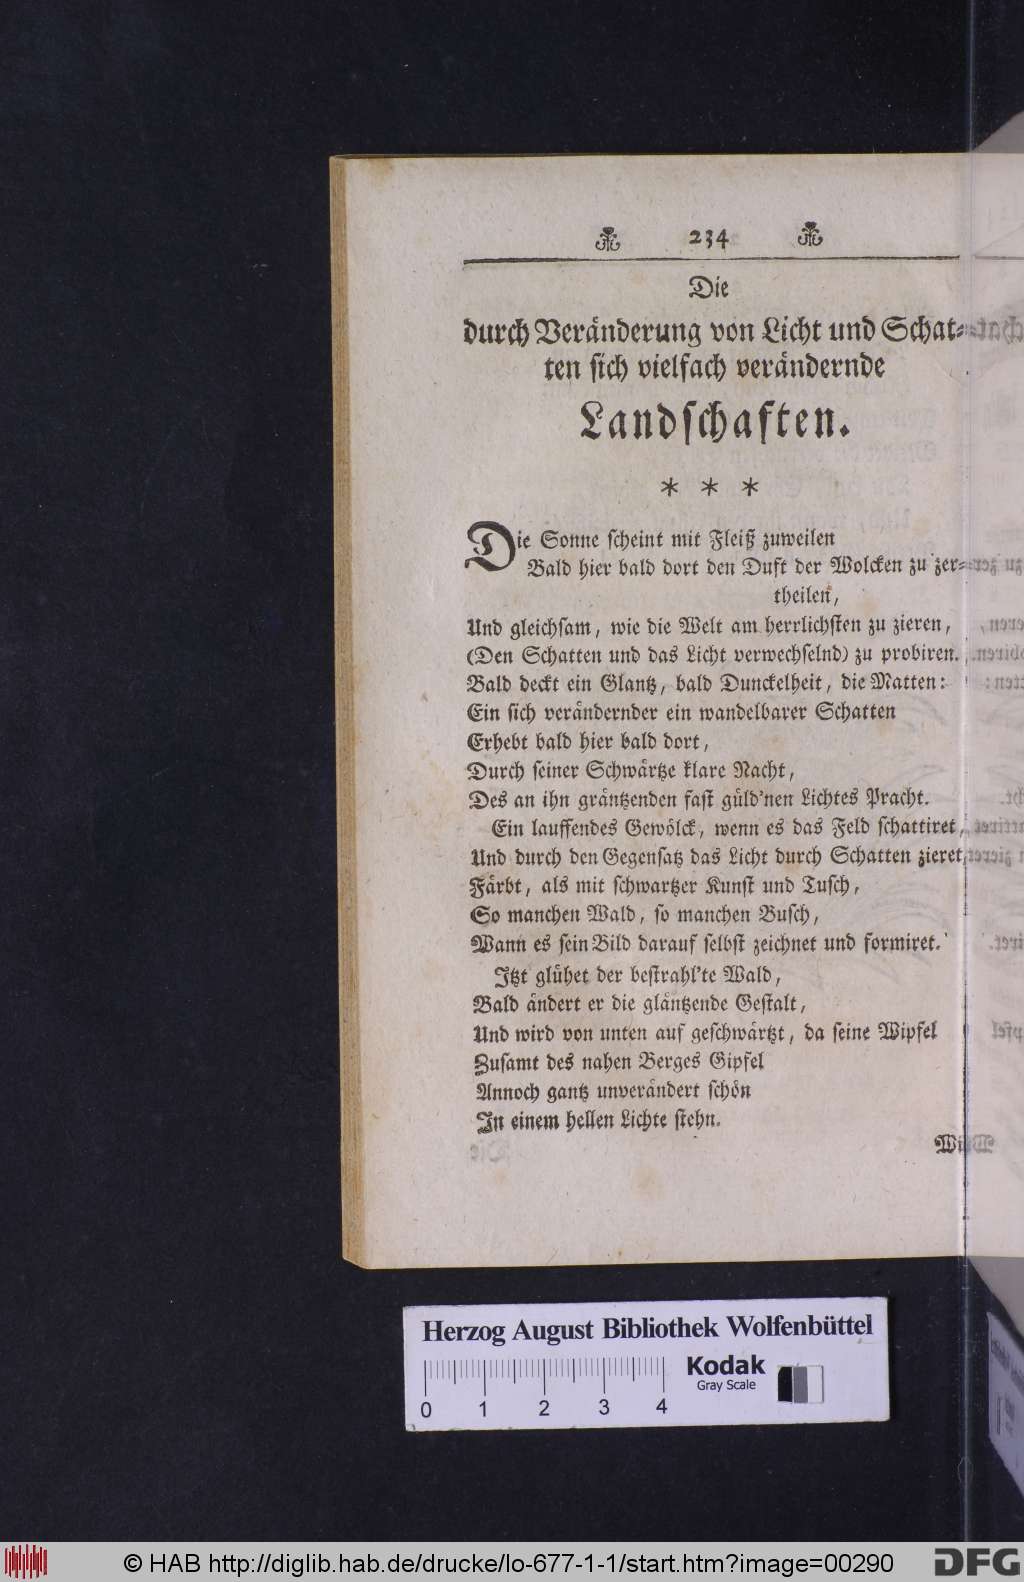 234
Die
durch Veränderung von Licht und Schat-
ten sich vielfach verändernde
Landschaften.
* * *
Die Sonne scheint mit Fleiß zuweilen
Bald hier bald dort den Duft der Wolcken zu zer-
theilen,
Und gleichsam, wie die Welt am herrlichsten zu zieren,
(Den Schatten und das Licht verwechselnd) zu probiren.
Bald deckt ein Glantz, bald Dunckelheit, die Matten:
Ein sich verändernder ein wandelbarer Schatten
Erhebt bald hier bald dort,
Durch seiner Schwärtze klare Nacht,
Des an ihn gräntzenden fast güld'nen Lichtes Pracht.
Ein lauffendes Gewölck, wenn es das Feld schattiret,
Und durch den Gegensatz das Licht durch Schatten zieret,
Färbt, als mit schwartzer Kunst und Tusch,
So manchen Wald, so manchen Busch,
Wann es sein Bild darauf selbst zeichnet und formiret.
Itzt glühet der bestrahl'te Wald,
Bald ändert er die gläntzende Gestalt,
Und wird von unten auf geschwärtzt, da seine Wipfel
Zusamt des nahen Berges Gipfel
Annoch gantz unverändert schön
In einem hellen Lichte stehn.
Herzog August Bibliothek Wolfenbüttel
Kodak
Gray Scale
0 1 2 3 4
© HAB http://diglib.hab.de/drucke/lo-677-1-1/start.htm?image=00290
DFG